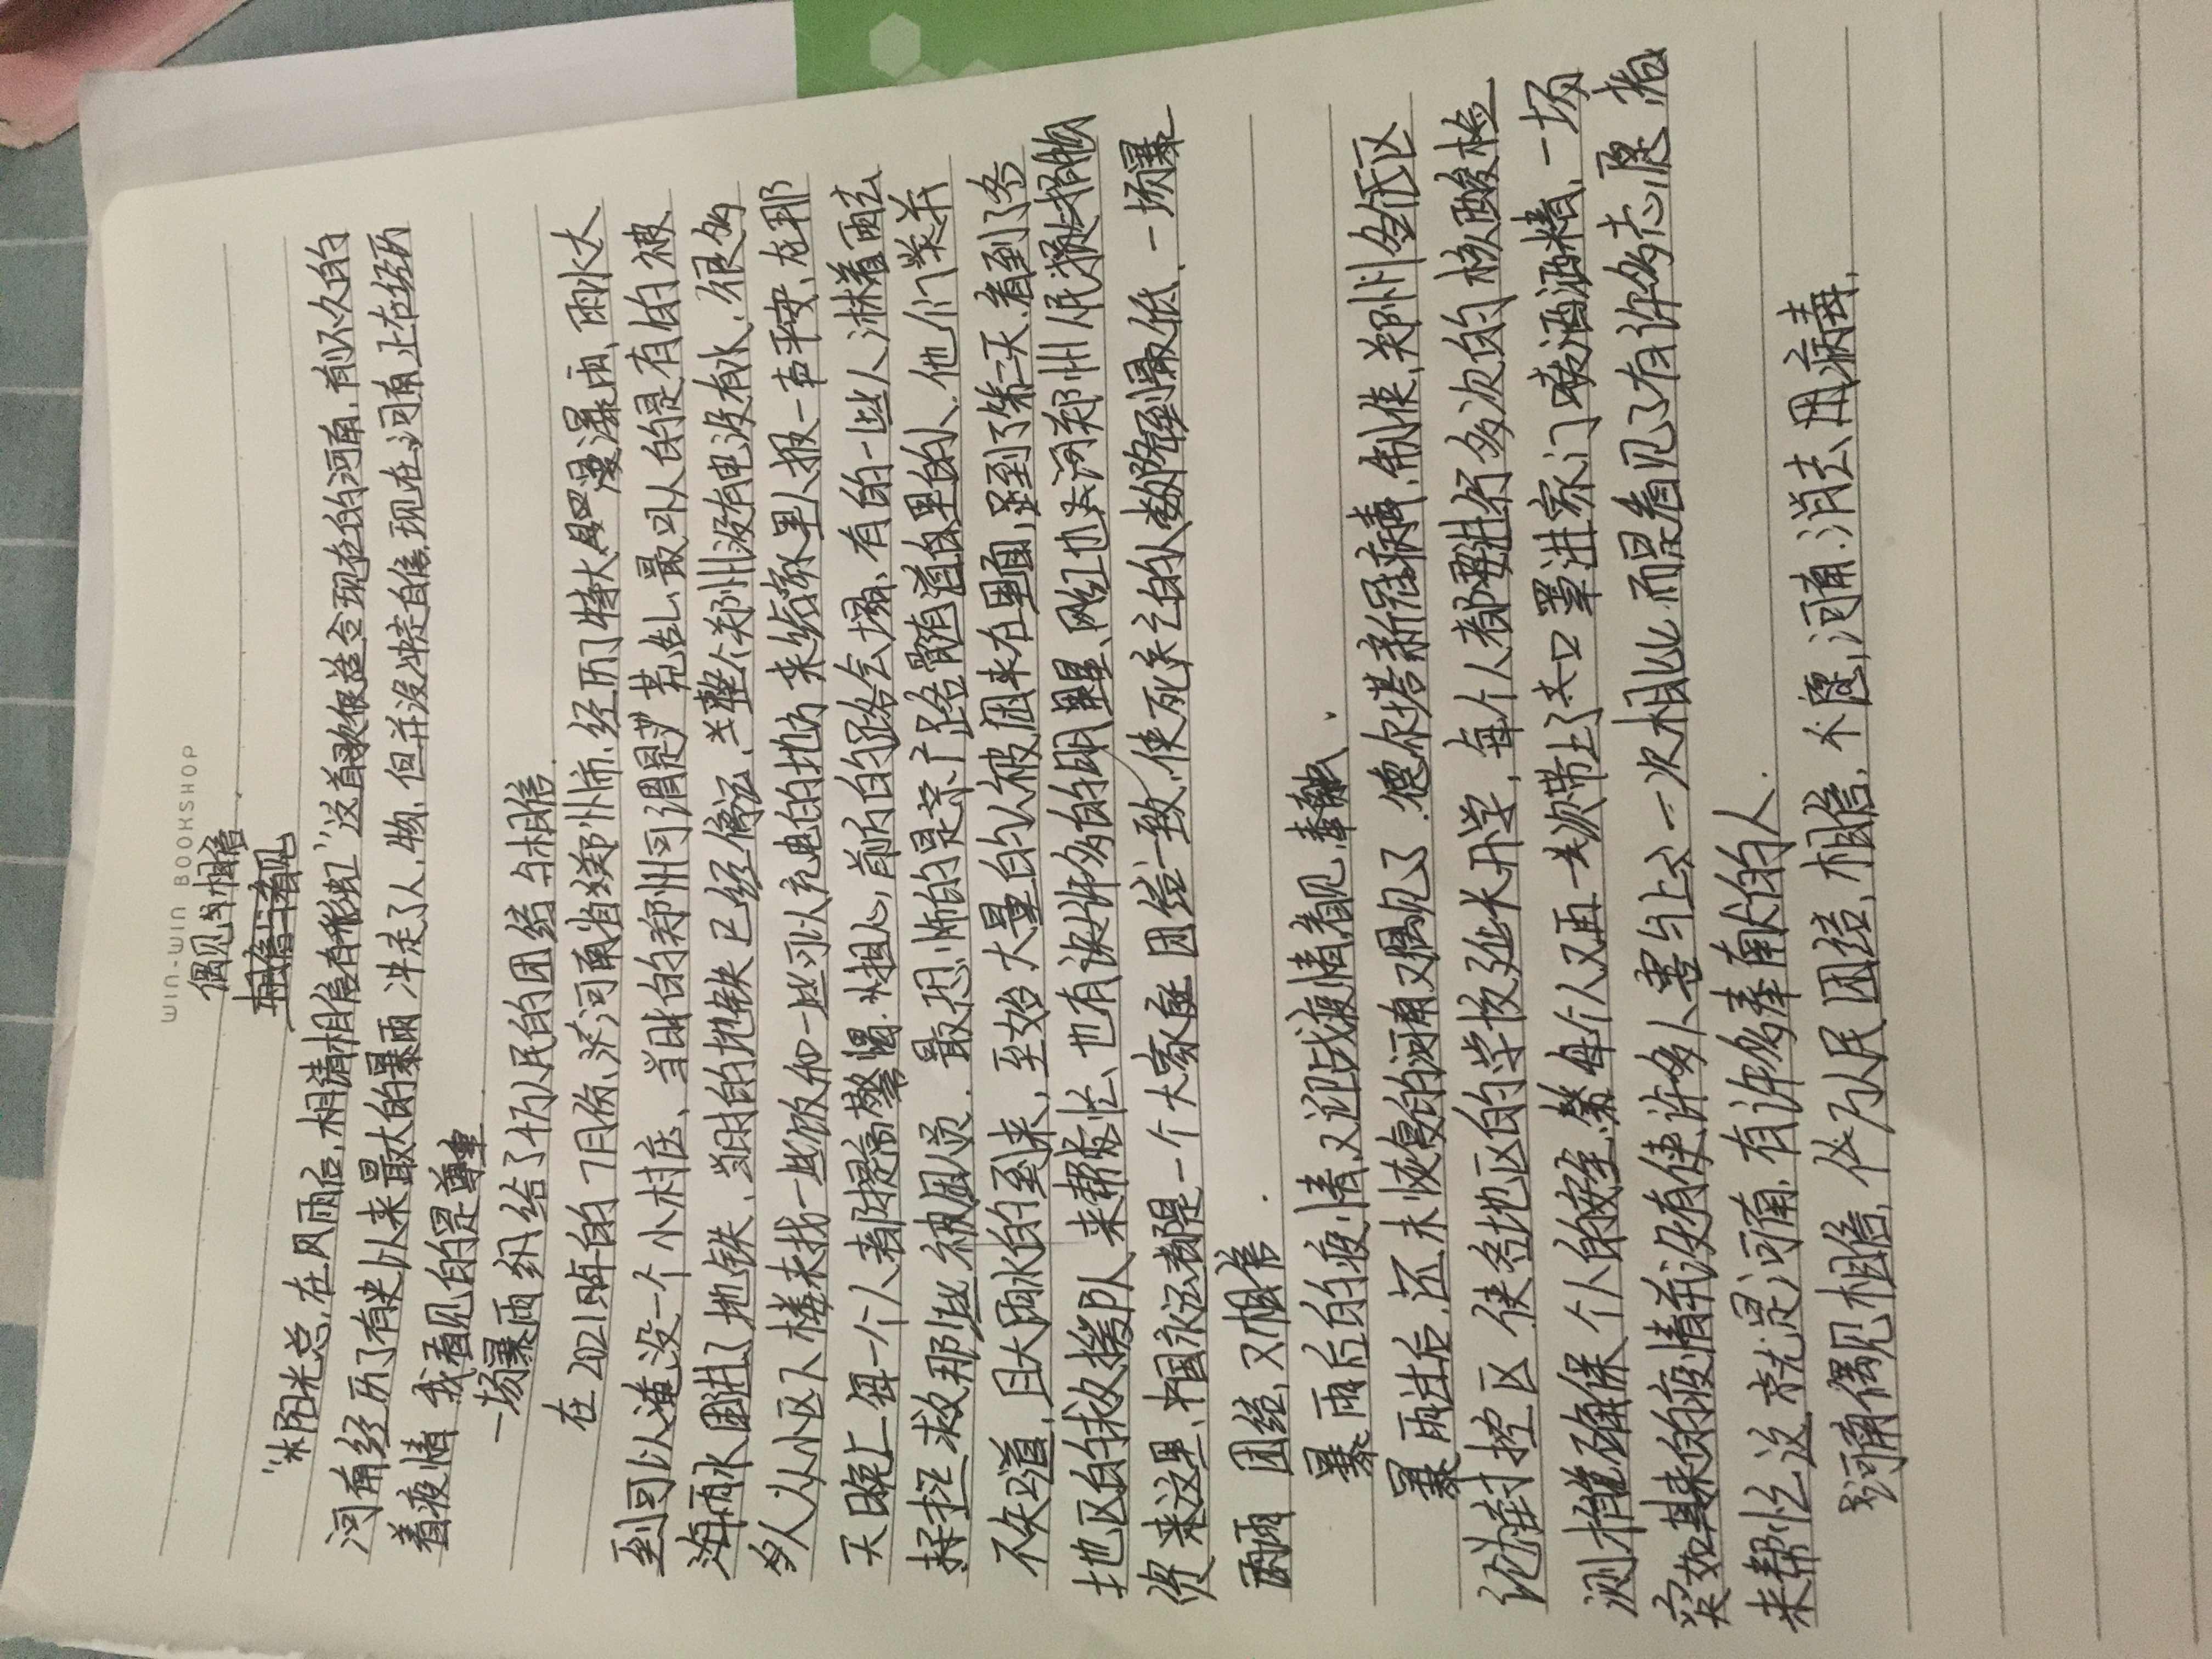 WIN-WIN BOOKSHOP
偶见与相信.
相信与看见
"阳光总在风雨后,相清相信有彩虹"这首歌很适合现在的河南,前不久的
河南经历了有史以来最大的暴雨,冲走了人,物,但并没冲走自信,现在河南正在经历
着疫情 我看见的是尊重
一场暴雨 给了千万人民的团结与相信.
在2021年的7月份,河南省郑州市,经历了特大暴雨,雨水大
到可以淹没一个小村庄,当时的郑州可谓是慌乱,最吓人的是有的被
雨水困进了地铁,当时的地铁已经停运,整个郑州没有电没有水,很多
多人从小区下楼来找一些饭和一些可以充电的地方来给家里人报一声平安,在那
天晚上每一个人都提高警惕,担心前方的路会塌,有的一些人淋着雨去
拯救那些被困人员.最恐怖的是京广路隧道里的人,他们并
不知道,且大雨水的到来,至始大量的人被困在里面,到了第二天,看到了各
地区的救援队来帮忙,也有许多的明星,网红也去河郑州居民捐物
资来这里,中国永远都是一个大家庭 团结一致,使死亡的人数降到最低,一场暴
雨 团结,又相信.
暴雨后的疫情,又迎战疫情看见奉献.
暴雨过后,还未恢复的河南又遇见了德尔塔新冠病毒,制使,郑州全民区
封控区 使各地区的学校延长开学,每个人都要进行多次的核酸检
测 确保个人的安全,每个人又再一次带上了口罩进家门喷酒酒精,一场
突如其来的疫情并没有使许多人害与上次一次相比,而是看见了有许多志愿者
来帮忙这就是河南,有许多奉献的人.
河南偶见相信,亿万人民团结,相信,不愿,河南,消去用病毒.